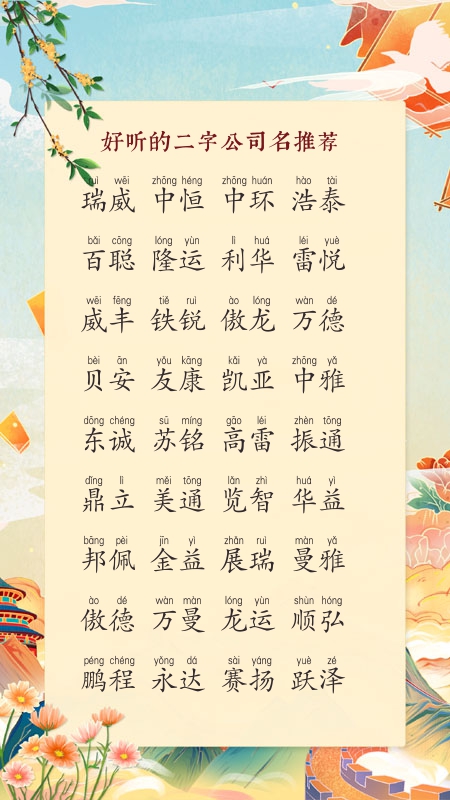 好听的二字公司名推荐
ruì wēi zhōng héng zhōng huán hào tài
瑞威 中恒 中环 浩泰
bǎi cōng lóng yùn lì huá léi yuè
百聪 隆运 利华 雷悦
wēi fēng tiě ruì ào lóng wàn dé
威丰 铁锐 傲龙 万德
bèi ān yǒu kāng kǎi yà zhōng yǎ
贝安 友康 凯亚 中雅
dōng chéng sū míng gāo léi zhèn tōng
东诚 苏铭 高雷 振通
dǐng lì měi tōng lǎn zhì huá yì
鼎立 美通 览智 华益
bāng pèi jīn yì zhǎn ruì màn yǎ
邦佩 金益 展瑞 曼雅
ào dé wàn màn lóng yùn shùn hóng
傲德 万曼 龙运 顺弘
péng chéng yǒng dá sài yáng yuè zé
鹏程 永达 赛扬 跃泽